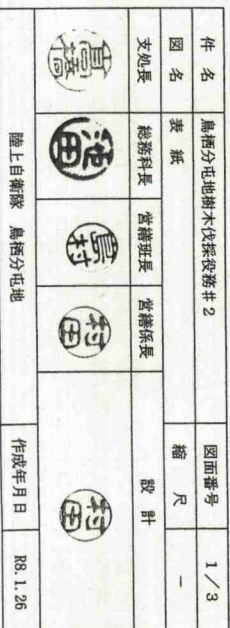 件名 鳥栖分屯地樹木伐採役務＃２ 図面番号 1／3
図名 表紙 縮尺 －
支処長 総務科長 営繕班長 営繕係長 設計
池田 島村 村田 村田
陸上自衛隊 鳥栖分屯地 作成年月日 R8.1.26